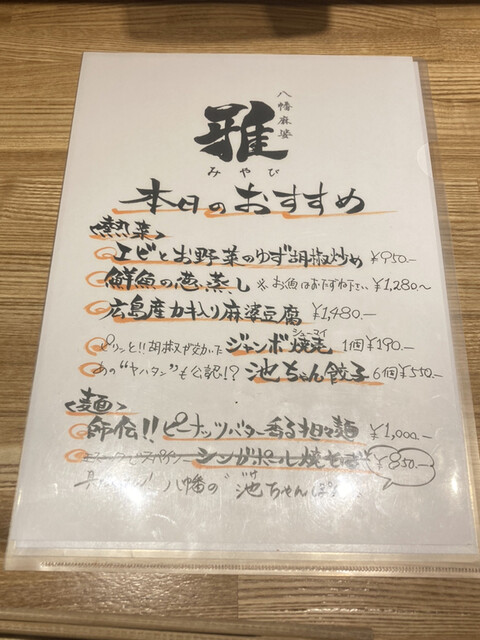 八幡麻婆
雅
みやび
本日のおすすめ
<熱菜>
エビとお野菜のゆず胡椒炒め ¥950.-
鮮魚の葱蒸し ※お魚はおたずね下さい ¥1,280.-~
広島産カキ入り麻婆豆腐 ¥1,480.-
ピリッと!!胡椒が効いたジャンボ焼売 1個¥190.-
シューマイ
あの"ヤハタン"も公認!? 池ちゃん餃子 6個¥550.-
<麺>
師伝!! ピーナッツバター香る担々麺 ¥1,000.-
シンガポール焼そば ¥850.-
八幡の"池ちゃん